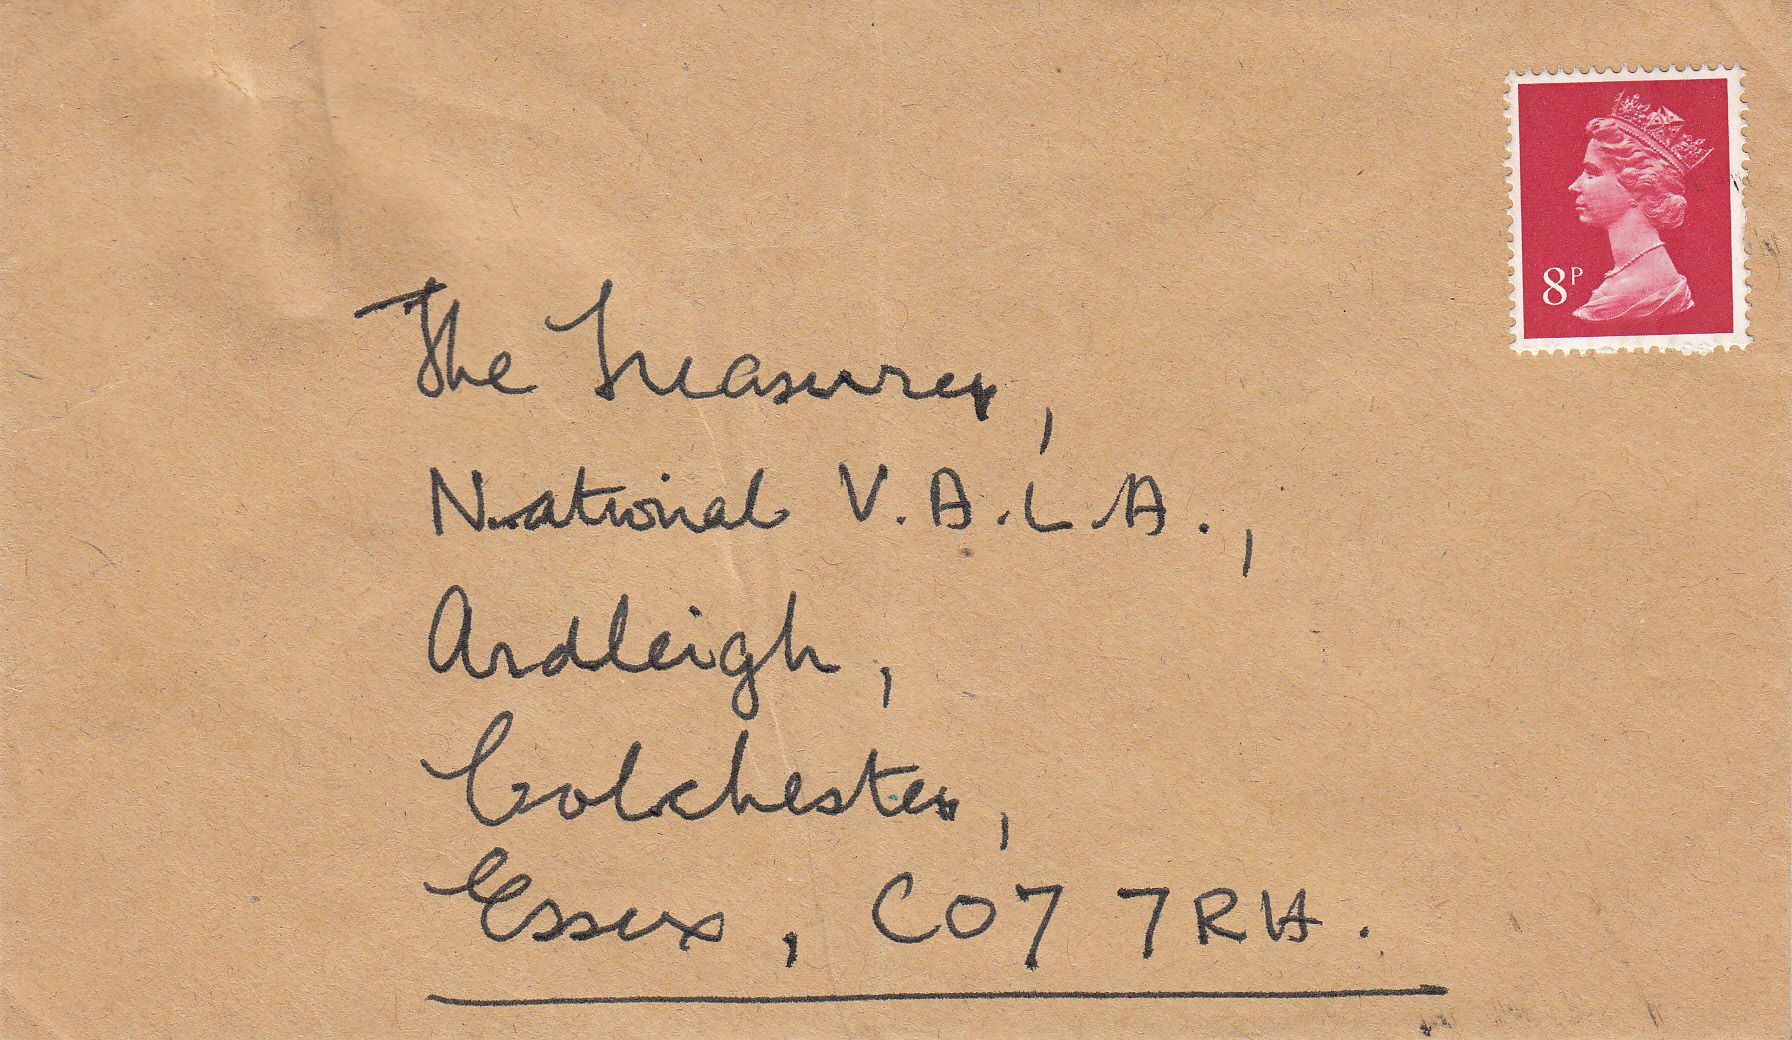 8P
The Treasurer,
National V.A.L.A.,
Ardleigh,
Colchester,
Essex, CO7 7RH.